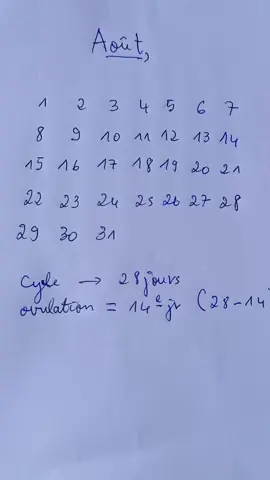 Août,
1 2 3 4 5 6 7
8 9 10 11 12 13 14
15 16 17 18 19 20 21
22 23 24 25 26 27 28
29 30 31
Cycle → 28 jours
ovulation = 14e jr (28-14